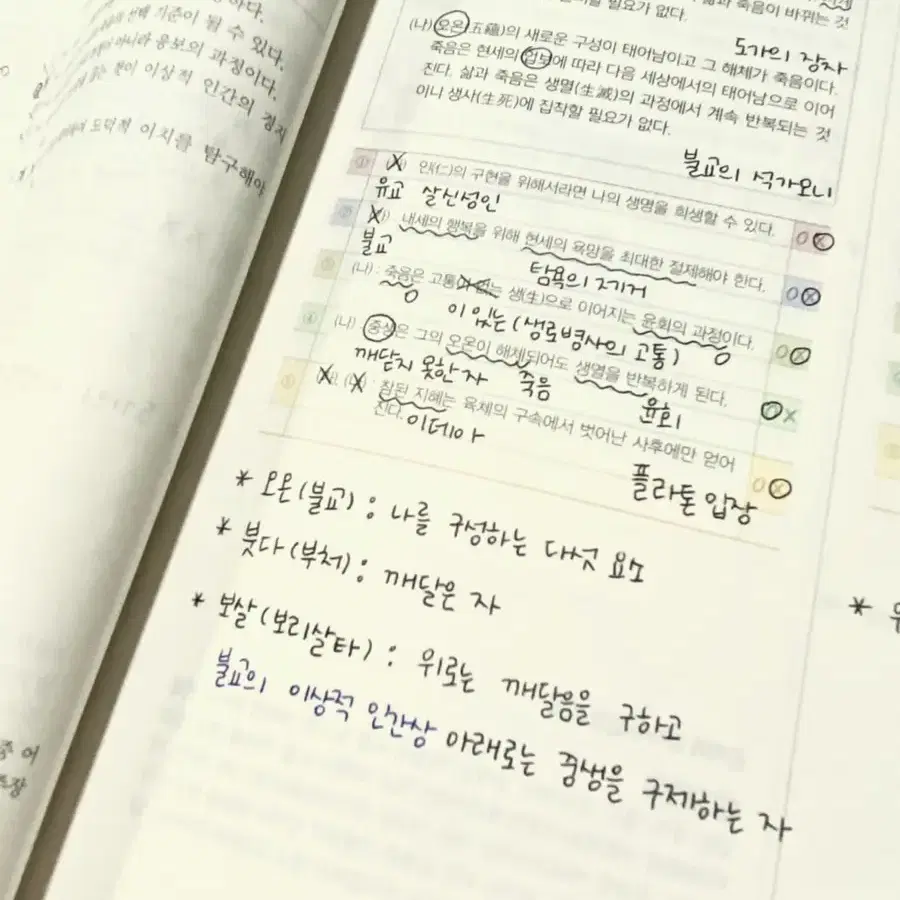 하다.
선택 기준이 될 수 있다.
아니라 응보의 과정이다.
것이 이상적 인간의 경지
도덕적 이치를 탐구해야
죽음이 바뀌는 것
필요가 없다.
도가의 장자
(나) 오온(五蘊)의 새로운 구성이 태어남이고 그 해체가 죽음이다.
죽음은 현세의 업보에 따라 다음 세상에서의 태어남으로 이어
진다. 삶과 죽음은 생멸(生滅)의 과정에서 계속 반복되는 것
이니 생사(生死)에 집착할 필요가 없다.
불교의 석가모니
① 인(仁)의 구현을 위해서라면 나의 생명을 희생할 수 있다. O X
유교 살신성인
② 내세의 행복을 위해 현세의 욕망을 최대한 절제해야 한다. O X
불교 탐욕의 제거
③ (나) : 죽음은 고통이 없는 생(生)으로 이어지는 윤회의 과정이다. O X
이 있는 (생로병사의 고통)
④ (나) : 중생은 그의 오온이 해체되어도 생멸을 반복하게 된다. O X
깨닫지 못한 자 죽음 윤회
⑤ 참된 지혜는 육체의 구속에서 벗어난 사후에만 얻어
진다. O X
이데아
플라톤 입장
* 오온(불교) : 나를 구성하는 다섯 요소
* 붓다(부처) : 깨달은 자
* 보살(보리살타) : 위로는 깨달음을 구하고
불교의 이상적 인간상 아래로는 중생을 구제하는 자
*